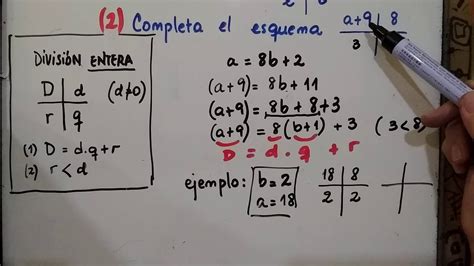 (2) Completa el esquema a+9 | 8
3
División ENTERA
D | d (d≠0)
r | q
(1) D = d.q+r
(2) r<d
a = 8b+2
(a+9) = 8b+11
(a+9) = 8b+8+3
(a+9) = 8(b+1) + 3 (3<8)
D = d . q + r
ejemplo: b=2
a=18
18 | 8
2 | 2